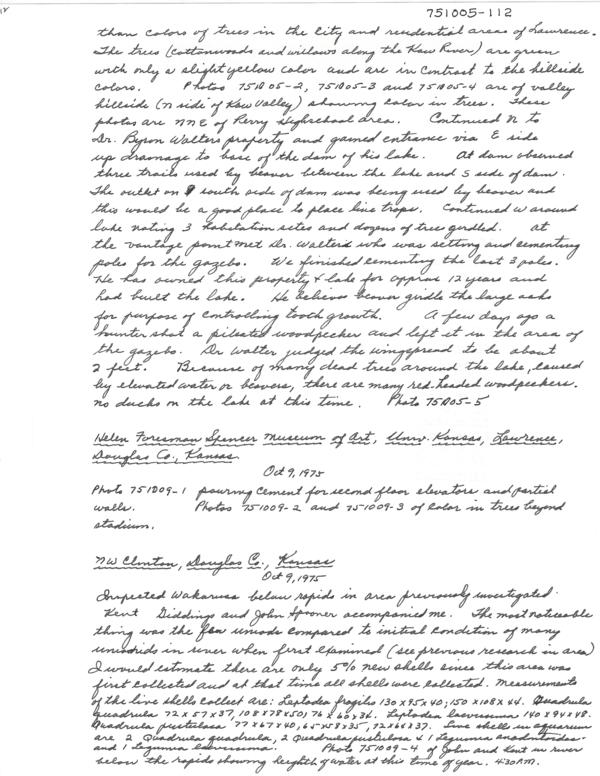 751005-112
than colors of trees in the city and residential areas of Lawrence.
The trees (cottonwoods and willows along the Kaw River) are green
with only a slight yellow color and are in contrast to the hillside
colors. Photos 751005-2, 751005-3 and 751005-4 are of valley
hillside (n side of Kaw Valley) showing color in trees. These
photos are NNE of Perry Highschool area. Continued N to
Dr. Byron Walters property and gained entrance via E side
up drainage to base of the dam of his lake. At dam observed
three trails used by beaver between the lake and S side of dam.
The outlet on south side of dam was being used by beaver and
this would be a good place to place line traps. Continued W around
lake noting 3 habitation sites and dozens of trees girdled. At
the vantage point met Dr. Walters who was setting and cementing
poles for the gazebo. We finished cementing the last 3 poles.
He has owned this property & lake for approx 12 years and
had built the lake. He believes beaver girdle the large oaks
for purpose of controlling tooth growth. A few days ago a
hunter shot a pileated woodpecker and left it in the area of
the gazebo. Dr Walter judged the wingspread to be about
2 feet. Because of many dead trees around the lake, caused
by elevated water or beavers, there are many red-headed woodpeckers.
No ducks on the lake at this time. Photo 751005-5
Helen Foresman Spencer Museum of Art, Univ. Kansas, Lawrence,
Douglas Co., Kansas.
Oct 9, 1975
Photo 751009-1 pouring cement for second floor elevators and partial
walls. Photos 751009-2 and 751009-3 of color in trees beyond
stadium.
NW Clinton, Douglas Co., Kansas
Oct 9, 1975
Inspected Wakarusa below rapids in area previously investigated.
Kent Giddings and John Spooner accompanied me. The most noticeable
thing was the few unios compared to initial condition of many
unionids in river when first examined (see previous research in area)
I would estimate there are only 5% new shells since this area was
first collected and at that time all shells were collected. Measurements
of the live shells collect are: Leptodea fragilis 130x85x40; 150x108x44. Quadrula
quadrula 72x57x37, 108x78x50; 76x60x36. Leptodea laevissima 140x94x48.
Quadrula pustulosa 77x67x40, 65x58x35, 72x66x37. Live shells in aquarium
are 2 Quadrula quadrula, 2 Quadrula pustulosa & 1 Legumia anodontoides
and 1 Legumia laevissima. Photo 751009-4 of John and Kent in river
below the rapids showing heighth of water at this time of year. 430 PM.